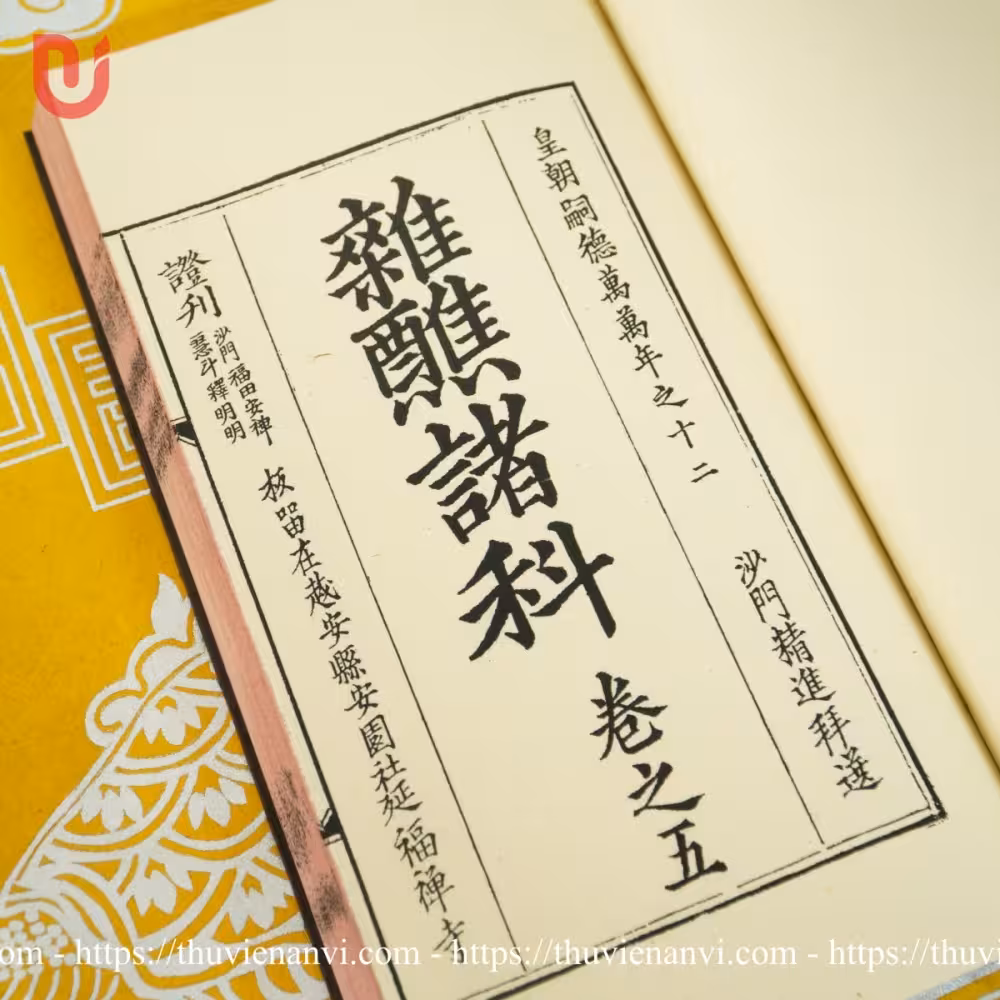 皇朝嗣德萬萬年之十二 沙門精進拜選
雜醮諸科 卷之五
證刊
沙門福田安
斗釋明明
板留在越安縣安園社延福禅寺
.com - https://thuvienanvi.com - https://thuvienanvi.com - https://thuvi